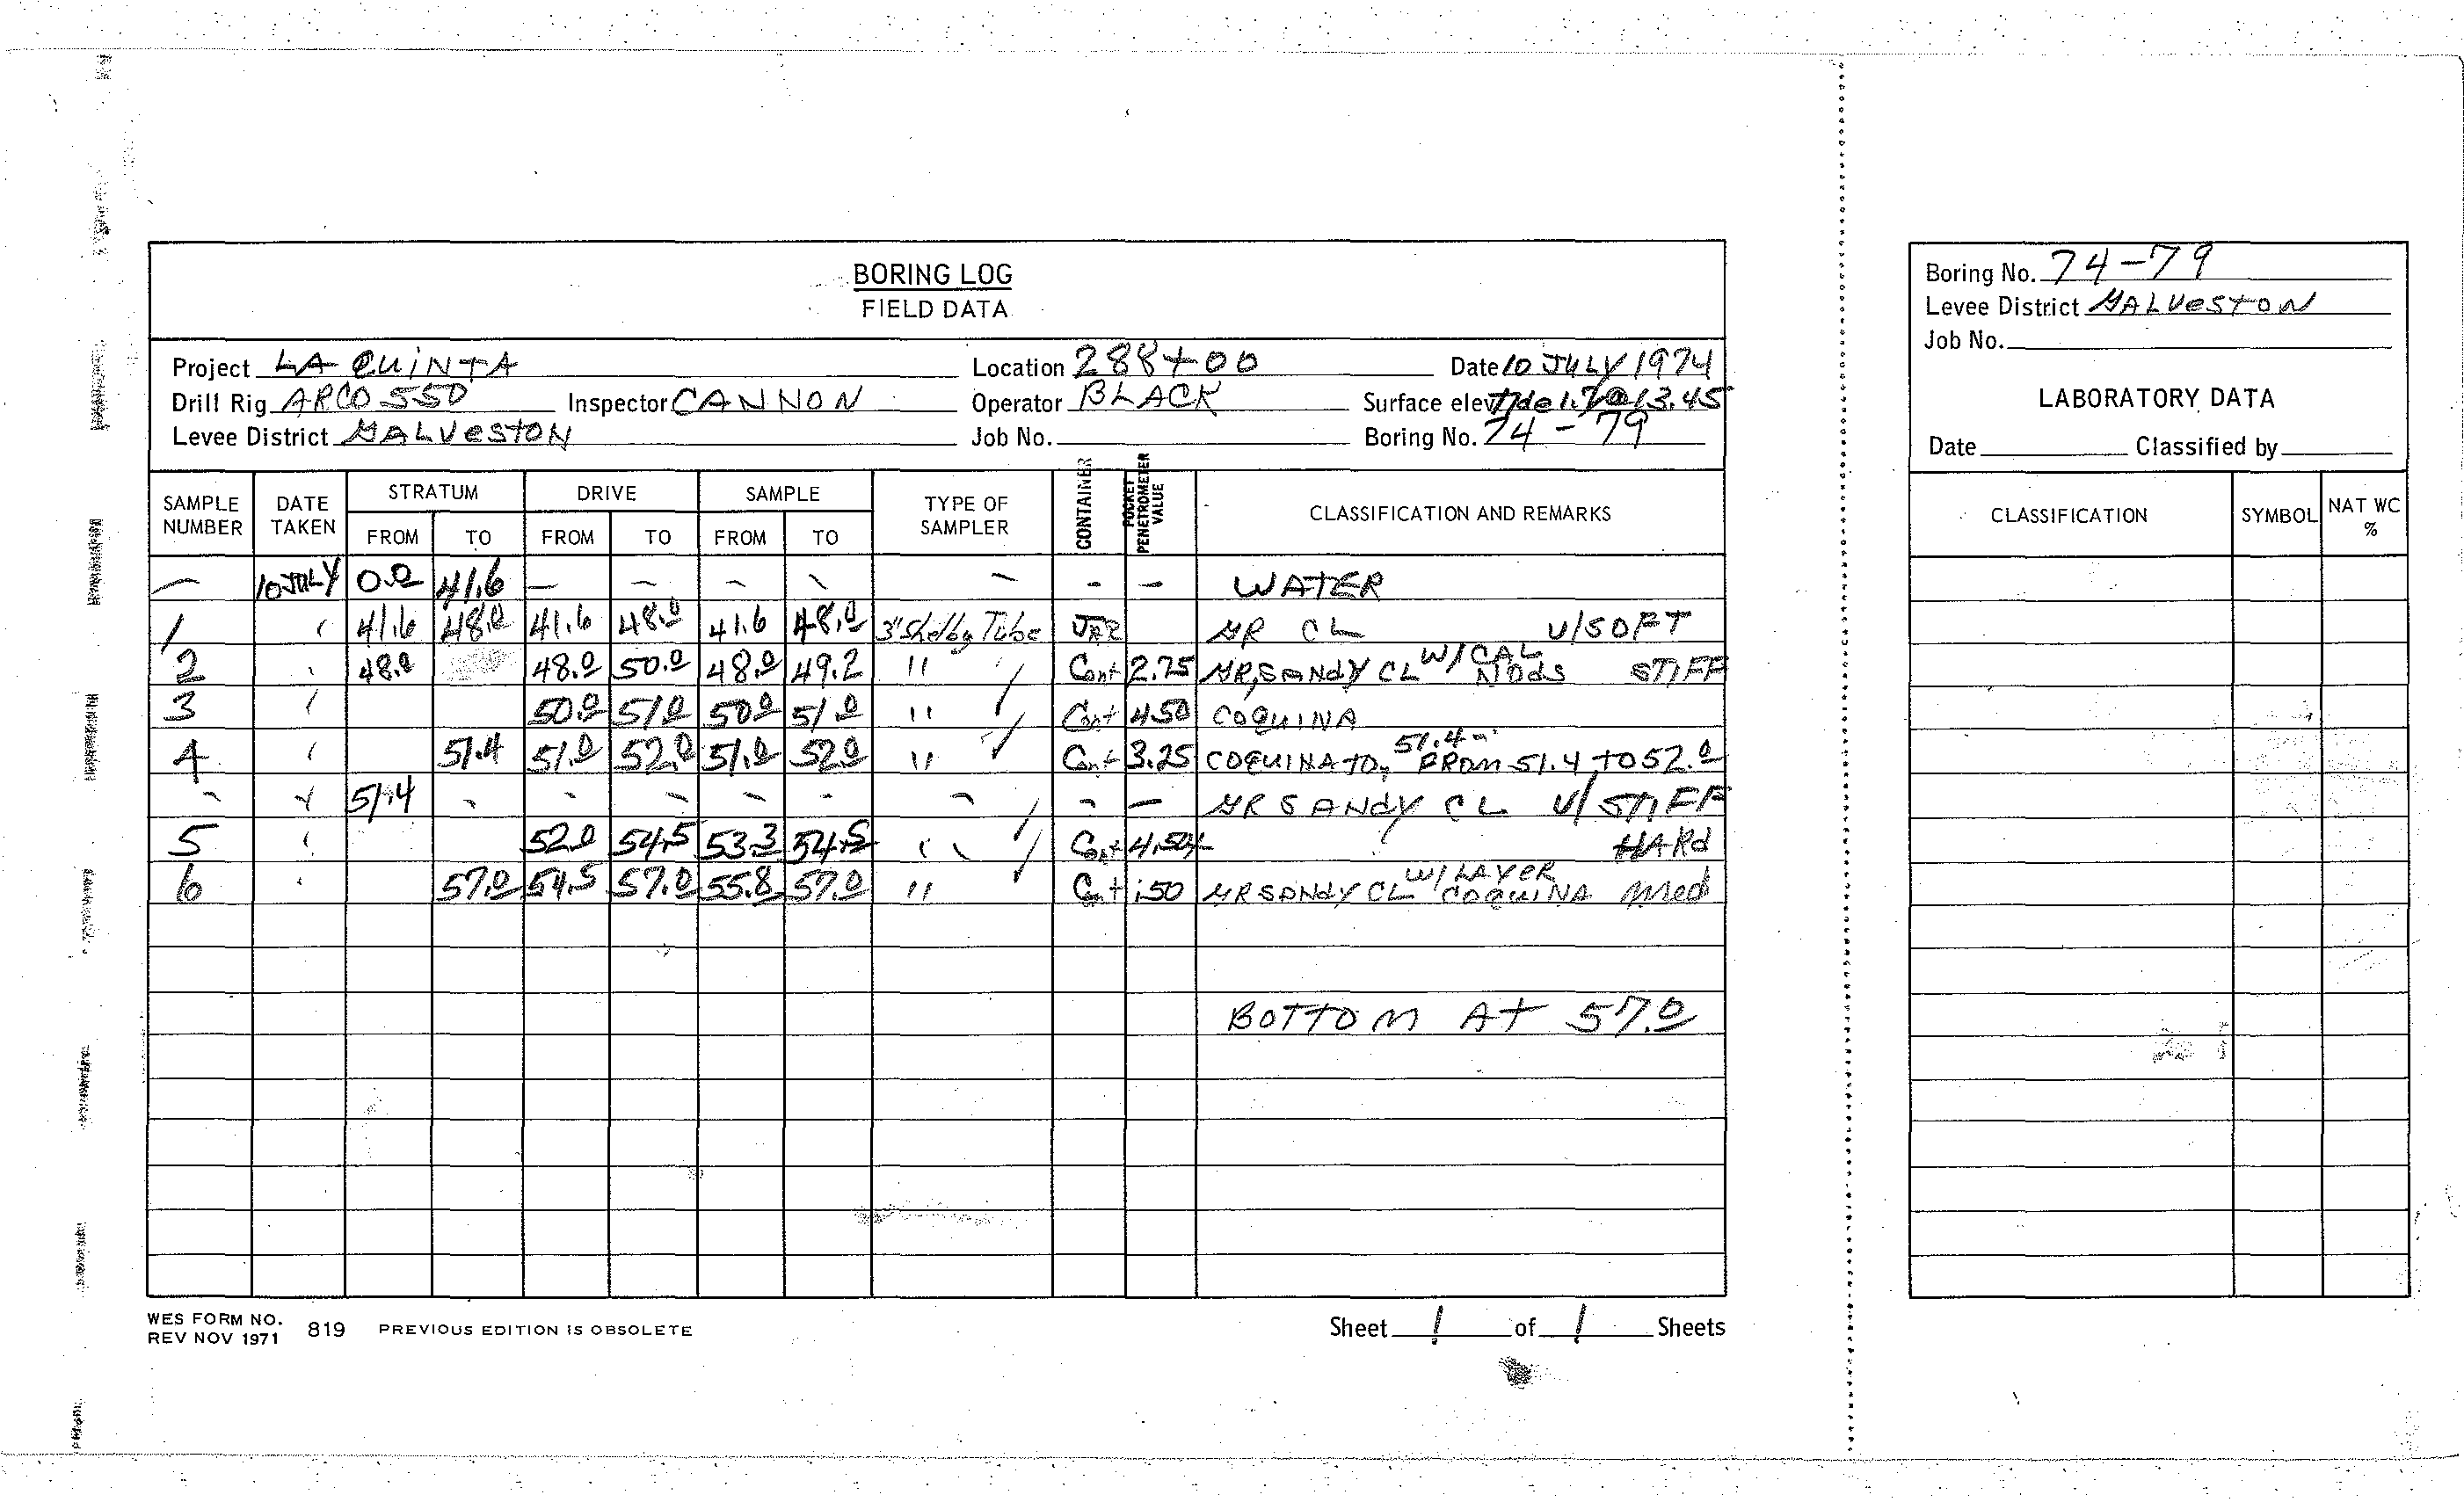 BORING LOG
FIELD DATA
Project LA QUINTA Location 288+00 Date 10 JULY 1974
Drill Rig ARCO 550 Inspector CANNON Operator BLACK Surface elev Tide 1.7@13.45
Levee District GALVESTON Job No. Boring No. 74-79
SAMPLE NUMBER DATE TAKEN STRATUM FROM TO DRIVE FROM TO SAMPLE FROM TO TYPE OF SAMPLER CONTAINER POCKET PENETROMETER VALUE CLASSIFICATION AND REMARKS
— 10 JULY 0.0 41.6 — — — — — — — WATER
1 " 41.6 48.0 41.6 48.0 41.6 48.0 3" Shelby Tube JAR GR CL V/SOFT
2 " 48.0 48.0 50.0 48.0 49.2 " Cont 2.75 GR, SANDY CL W/CAL NODS STIFF
3 " 50.0 51.0 50.0 51.0 " Cont 4.50 COQUINA
4 " 51.4 51.0 52.0 51.0 52.0 " Cont 3.25 COQUINA TO 51.4 - FROM 51.4 TO 52.0
- " 51.4 - - - - - - - — GR SANDY CL V/STIFF
5 " 52.0 54.5 53.3 54.5 " Cont 4.50+ HARD
6 " 57.0 54.5 57.0 55.8 57.0 " Cont 1.50 GR SANDY CL W/LAYER COQUINA Med
BOTTOM AT 57.0
WES FORM NO. 819 PREVIOUS EDITION IS OBSOLETE
REV NOV 1971
Sheet 1 of 1 Sheets
Boring No. 74-79
Levee District GALVESTON
Job No.
LABORATORY DATA
Date Classified by
CLASSIFICATION SYMBOL NAT WC %